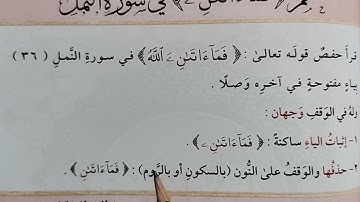 في سورة النمل
قرأ حفصٌ قوله تعالىٰ : ﴿ فَمَآ ءَاتَىٰنِۦَ ٱللَّهُ ﴾ في سورةِ النَّملِ ( ٣٦ )
بياءٍ مفتوحةٍ في آخرِه وَصلًا .
ولهُ في الوَقفِ وَجهان :
١- إثباتُ الياءِ ساكنةً : ﴿ فَمَآ ءَاتَىٰنِۦ ﴾ .
٢- حذفُها والوَقفُ علىٰ النُّون (بالسكونِ أو بالرَّوم) : ﴿ فَمَآ ءَاتَىٰنِ ﴾ .